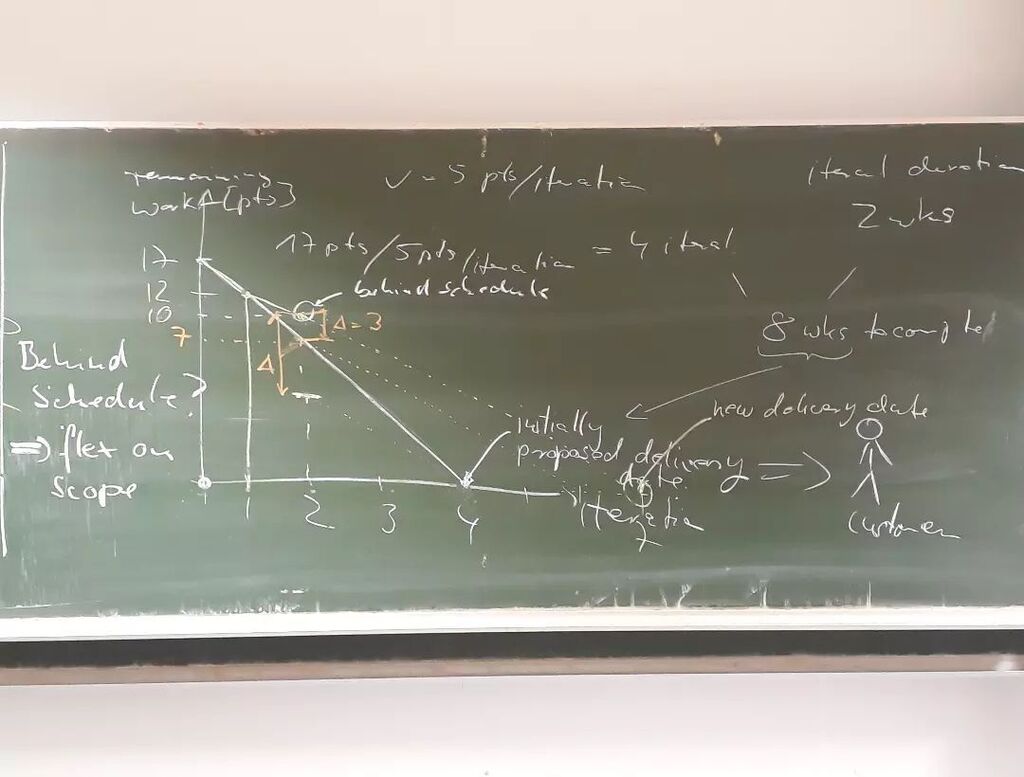 remaining
work [pts]
v = 5 pts/iteration
iterat duration
2 wks
17 pts / 5pts/iteration = 4 iterat
behind schedule
17
12
10
7
Δ = 3
Δ
8 wks to complete
Behind
Schedule?
=> flex on
scope
initially
proposed delivery
date
new delivery date
=>
customer
1
2
3
4
7
iteration